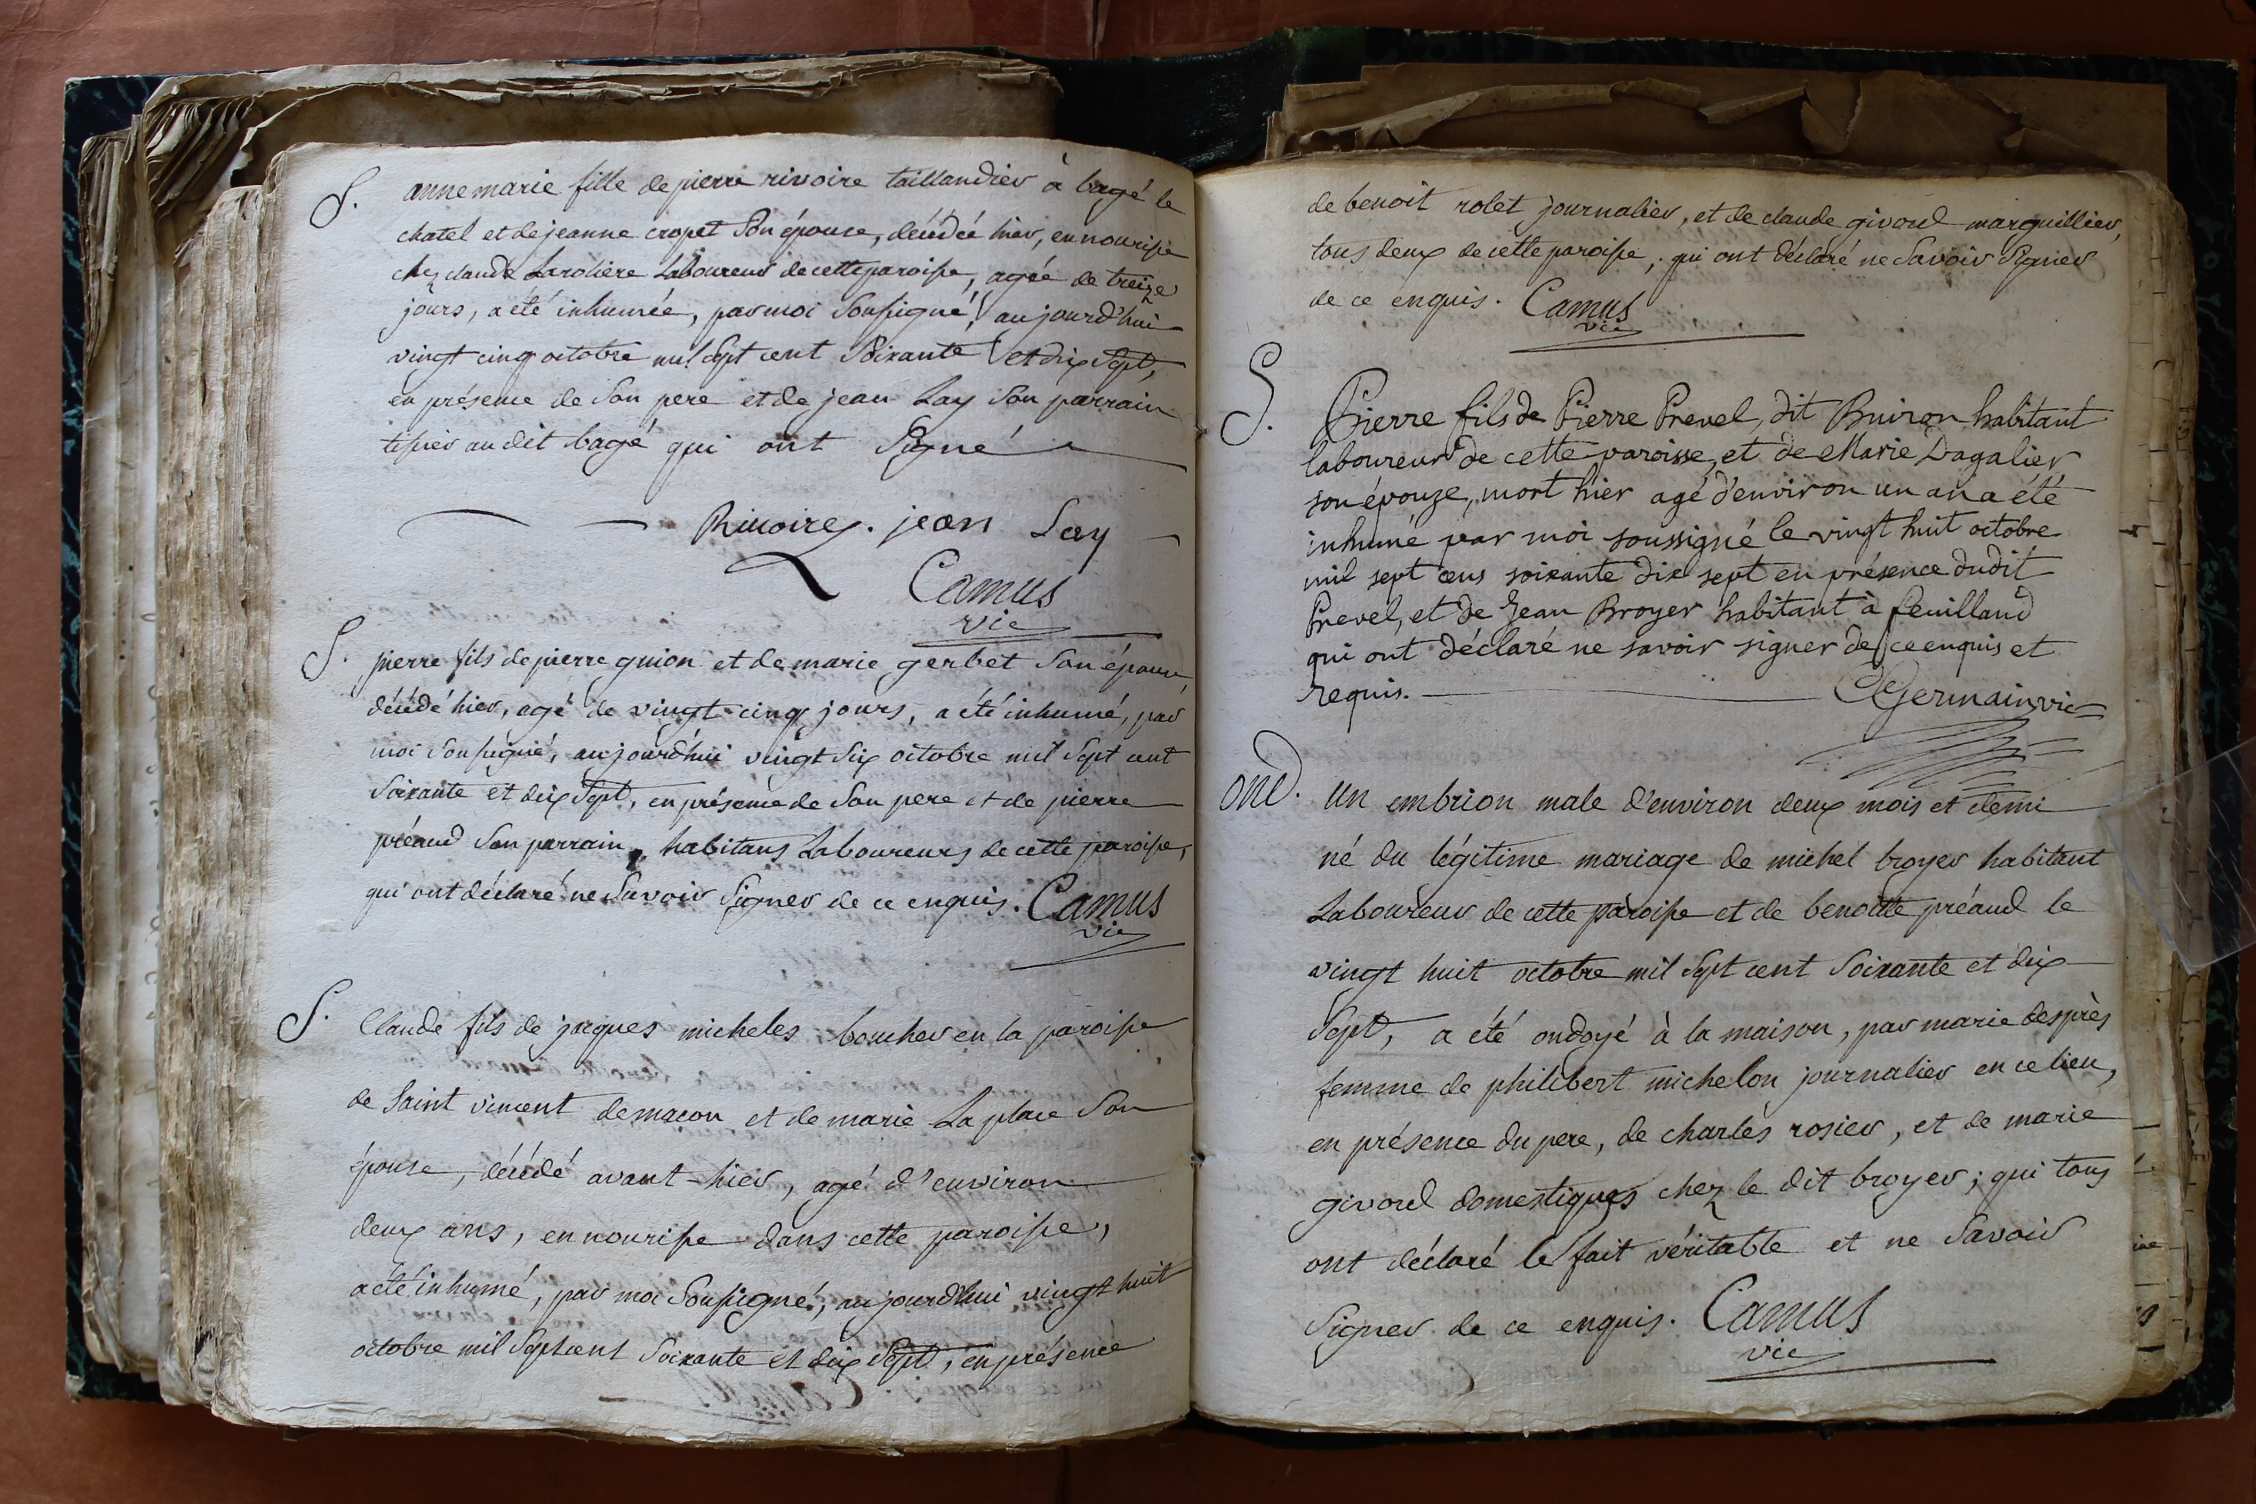 S. anne marie fille de pierre rivoire taillandier à bagé le
chatel et de jeanne cropet son épouse, décédée hier, en nourisse
chez claude Larolière Laboureur de cette paroisse, agée de treize
jours, a été inhumée, par moi soussigné, aujourd'hui
vingt cinq octobre mil sept cent soixante et dix sept,
en présence de son pere et de jean Lay son parrain
tissier au dit bagé qui ont signé
Rivoire. jean Lay
Camus
vic
S. pierre fils de pierre guion et de marie gerbet son épouse,
décédé hier, agé de vingt cinq jours, a été inhumé, par
moi soussigné, aujourd'hui vingt six octobre mil sept cent
soixante et dix sept, en présence de son pere et de pierre
préaud son parrain, habitans Laboureurs de cette paroisse,
qui ont déclaré ne savoir signer de ce enquis. Camus
vic
S. Claude fils de jacques micheles boucher en la paroisse
de saint vincent de macon et de marie La place son
épouse, décédé avant-hier, agé d'environ
deux ans, en nourisse dans cette paroisse,
a été inhumé, par moi soussigné, aujourd'hui vingt huit
octobre mil sept cent soixante et dix sept, en présence
de benoit rolet journalier, et de claude givord marguillier,
tous deux de cette paroisse, qui ont déclaré ne savoir signer
de ce enquis. Camus
vic
S. Pierre fils de Pierre Prevel, dit Buiron habitant
laboureur de cette paroisse, et de Marie Dagalier
son épouze, mort hier agé d'environ un an a été
inhumé par moi soussigné le vingt huit octobre
mil sept cens soixante dix sept en présence dudit
Prevel, et de Jean Broyer habitant à feuilland
qui ont déclaré ne savoir signer de ce enquis et
requis. Germain vic
ond. un embrion male d'environ deux mois et demi
né du légitime mariage de michel broyer habitant
Laboureur de cette paroisse et de benoitte préaud le
vingt huit octobre mil sept cent soixante et dix
sept, a été ondoyé à la maison, par marie desprès
femme de philibert michelon journalier en ce lieu,
en présence du pere, de charles rosier, et de marie
givord domestiques chez le dit broyer; qui tous
ont déclaré le fait véritable et ne savoir
signer de ce enquis. Camus
vic